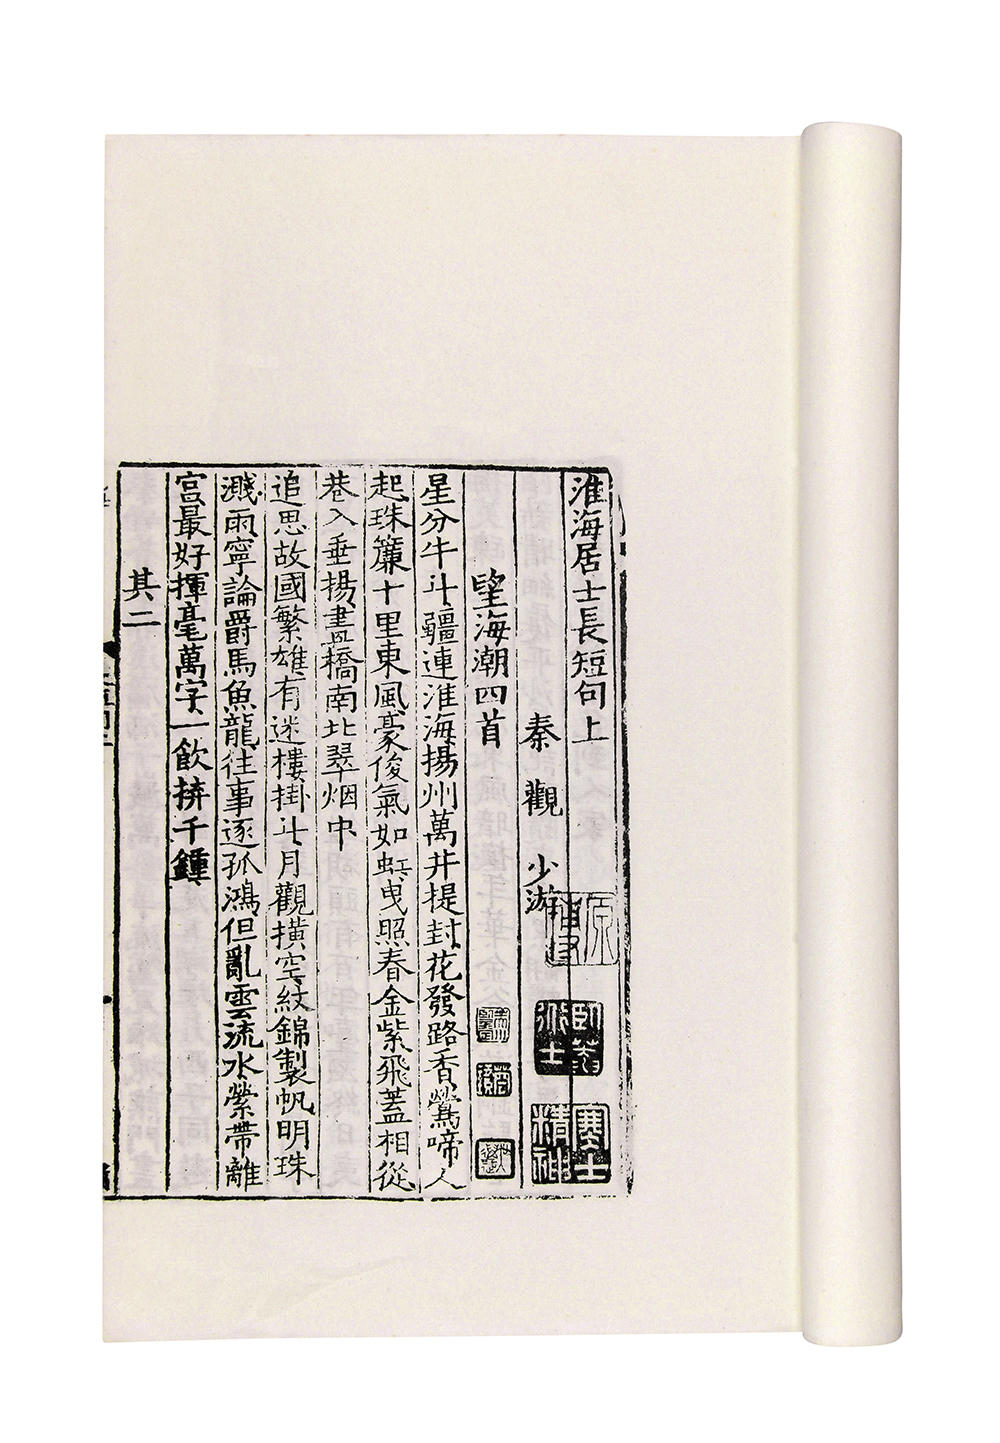 淮海居士長短句上
秦觀少游
望海潮四首
星分牛斗疆連淮海揚州萬井提封花發路香鶯啼人
起珠簾十里東風豪俊氣如虹曳照春金紫飛蓋相從
巷入垂楊畫橋南北翠烟中
追思故國繁雄有迷樓掛斗月觀橫空紋錦製帆明珠
濺雨寧論爵馬魚龍往事逐孤鴻但亂雲流水縈帶離
宮最好揮毫萬字一飲拚千鍾
其二
寒士
精神